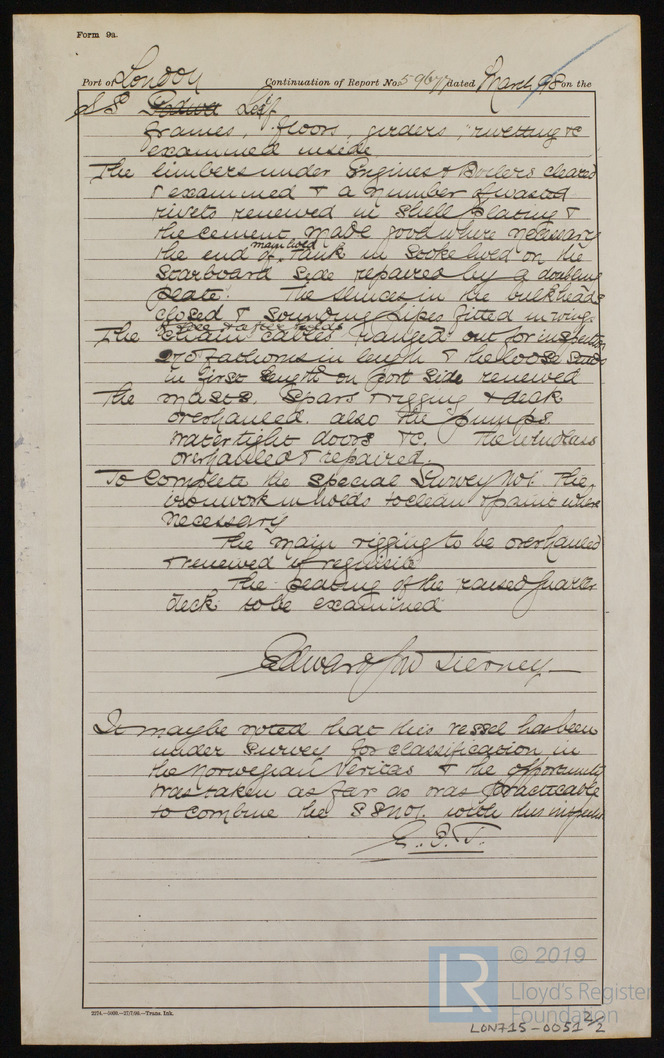 Form 9a.
Port of London Continuation of Report No. 59677 dated March 98 on the
SS Leif
frames, floors, girders, rivetting &c
examined inside
The limbers under Engines & Boilers cleared
& examined & a number of wasted
rivets renewed in shell plating &
the cement made good where necessary
the end of main hold tank in stokehold on the
starboard side repaired by a doubling
plate. The sluices in the bulkheads
closed & sounding pipes fitted in wings
of fore & after holds
The chain cables ranged out for inspection
270 fathoms in length & the loose studs
in first length on port side renewed
The masts, spars rigging & deck
overhauled. also the pumps.
watertight doors &c. The windlass
overhauled & repaired.
To complete the special Survey No1 The
ironwork in holds to clean & paint where
necessary
The main rigging to be overhauled
& renewed if requisite
The plating of the raised quarter
deck to be examined
Edward Tierney
It may be noted that this vessel has been
under survey for classification in
the Norwegian Veritas & the opportunity
was taken as far as was practicable
to combine the SSNo1. with this
2274.—5000.—27/7/96.—Trans. Ink.
LR
© 2019
Lloyd's Register
Foundation
LON715-0051 2/2